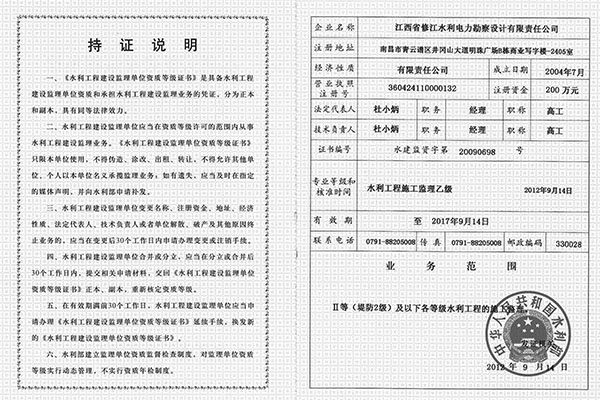 持证说明
一、《水利工程建设监理单位资质等级证书》是具备水利工程
建设监理单位资质和承担水利工程建设监理业务的凭证，分为正本
和副本，具有同等法律效力。
二、水利工程建设监理单位应当在资质等级许可的范围内从事
水利工程建设监理业务。《水利工程建设监理单位资质等级证书》
只限本单位使用，不得伪造、涂改、出租、转让，不得允许其他单
位、个人以本单位名义承揽监理业务；如有遗失，应当及时在指定
的媒体声明，并向水利部申请补发。
三、水利工程建设监理单位变更名称、注册资金、地址、经济
性质、法定代表人、技术负责人或者单位解散、破产及其他原因终
止业务的，应当在变更后30个工作日内申请办理变更或注销手续。
四、水利工程建设监理单位合并或分立，应当在分立或合并后
30个工作日内，提交相关申请材料，交回《水利工程建设监理单位
资质等级证书》正本、副本，重新核定资质等级。
五、在有效期满前30个工作日，水利工程建设监理单位应当申
请办理《水利工程建设监理单位资质等级证书》延续手续，换发新
的《水利工程建设监理单位资质等级证书》。
六、水利部建立监理单位资质监督检查制度，对监理单位资质等
级实行动态管理，不实行资质年检制度。
企业名称 江西省修江水利电力勘察设计有限责任公司
注册地址 南昌市青云谱区井冈山大道明珠广场B栋商业写字楼-2405室
经济性质 有限责任公司 成立日期 2004年7月
营业执照注册号 360424110000132 注册资金 200万元
法定代表人 杜小炳 职务 经理 职称 高工
技术负责人 杜小炳 职务 经理 职称 高工
证书编号 水建监资字第 20090698 号
专业等级和核准时间 水利工程施工监理乙级 2012年9月14日
有效期 至 2017年9月14日
联系电话 0791-88205008 传真 0791-88205008 邮政编码 330028
业务范围
Ⅱ等（堤防2级）及以下各等级水利工程的施工监理。
中华人民共和国水利部
发证机关
2012年9月14日